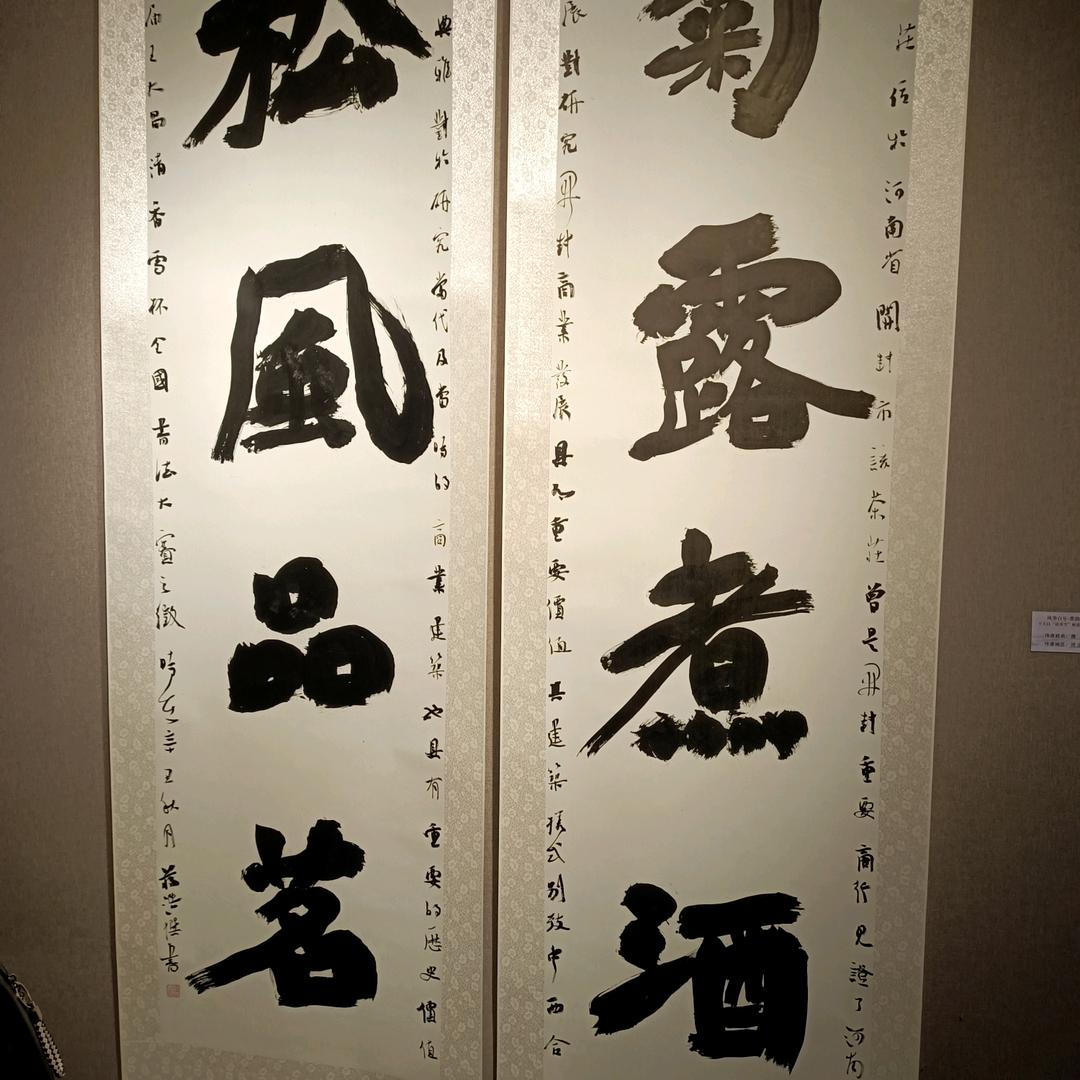 莊位於河南省開封市該茶莊曾是開封重要商行見證了河南
菊露煮酒
展對研究開封商業發展具有重要價值其建築樣式別致中西合
典雅對於研究當代及當時的商業建築也具有重要的歷史價值
松風品茗
届王大昌清香雪杯全國書法大賽之徵時在辛丑秋月
書